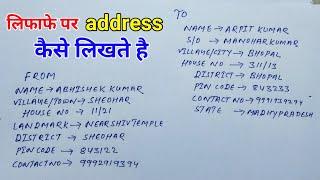 लिफाफे पर address
कैसे लिखते है
FROM
NAME → ABHISHEK KUMAR
VILLAGE/TOWN → SHEOHAR
HOUSE NO → 11/21
LANDMARK → NEAR SHIV TEMPLE
DISTRICT → SHEOHAR
PIN CODE → 843122
CONTACT NO → 9992919394
TO
NAME → ARPIT KUMAR
S/O → MANOHAR KUMAR
VILLAGE/CITY → BHOPAL
HOUSE NO → 311/13
DISTRICT → BHOPAL
PIN CODE → 843233
CONTACT NO →
STATE → MADHYPRADESH